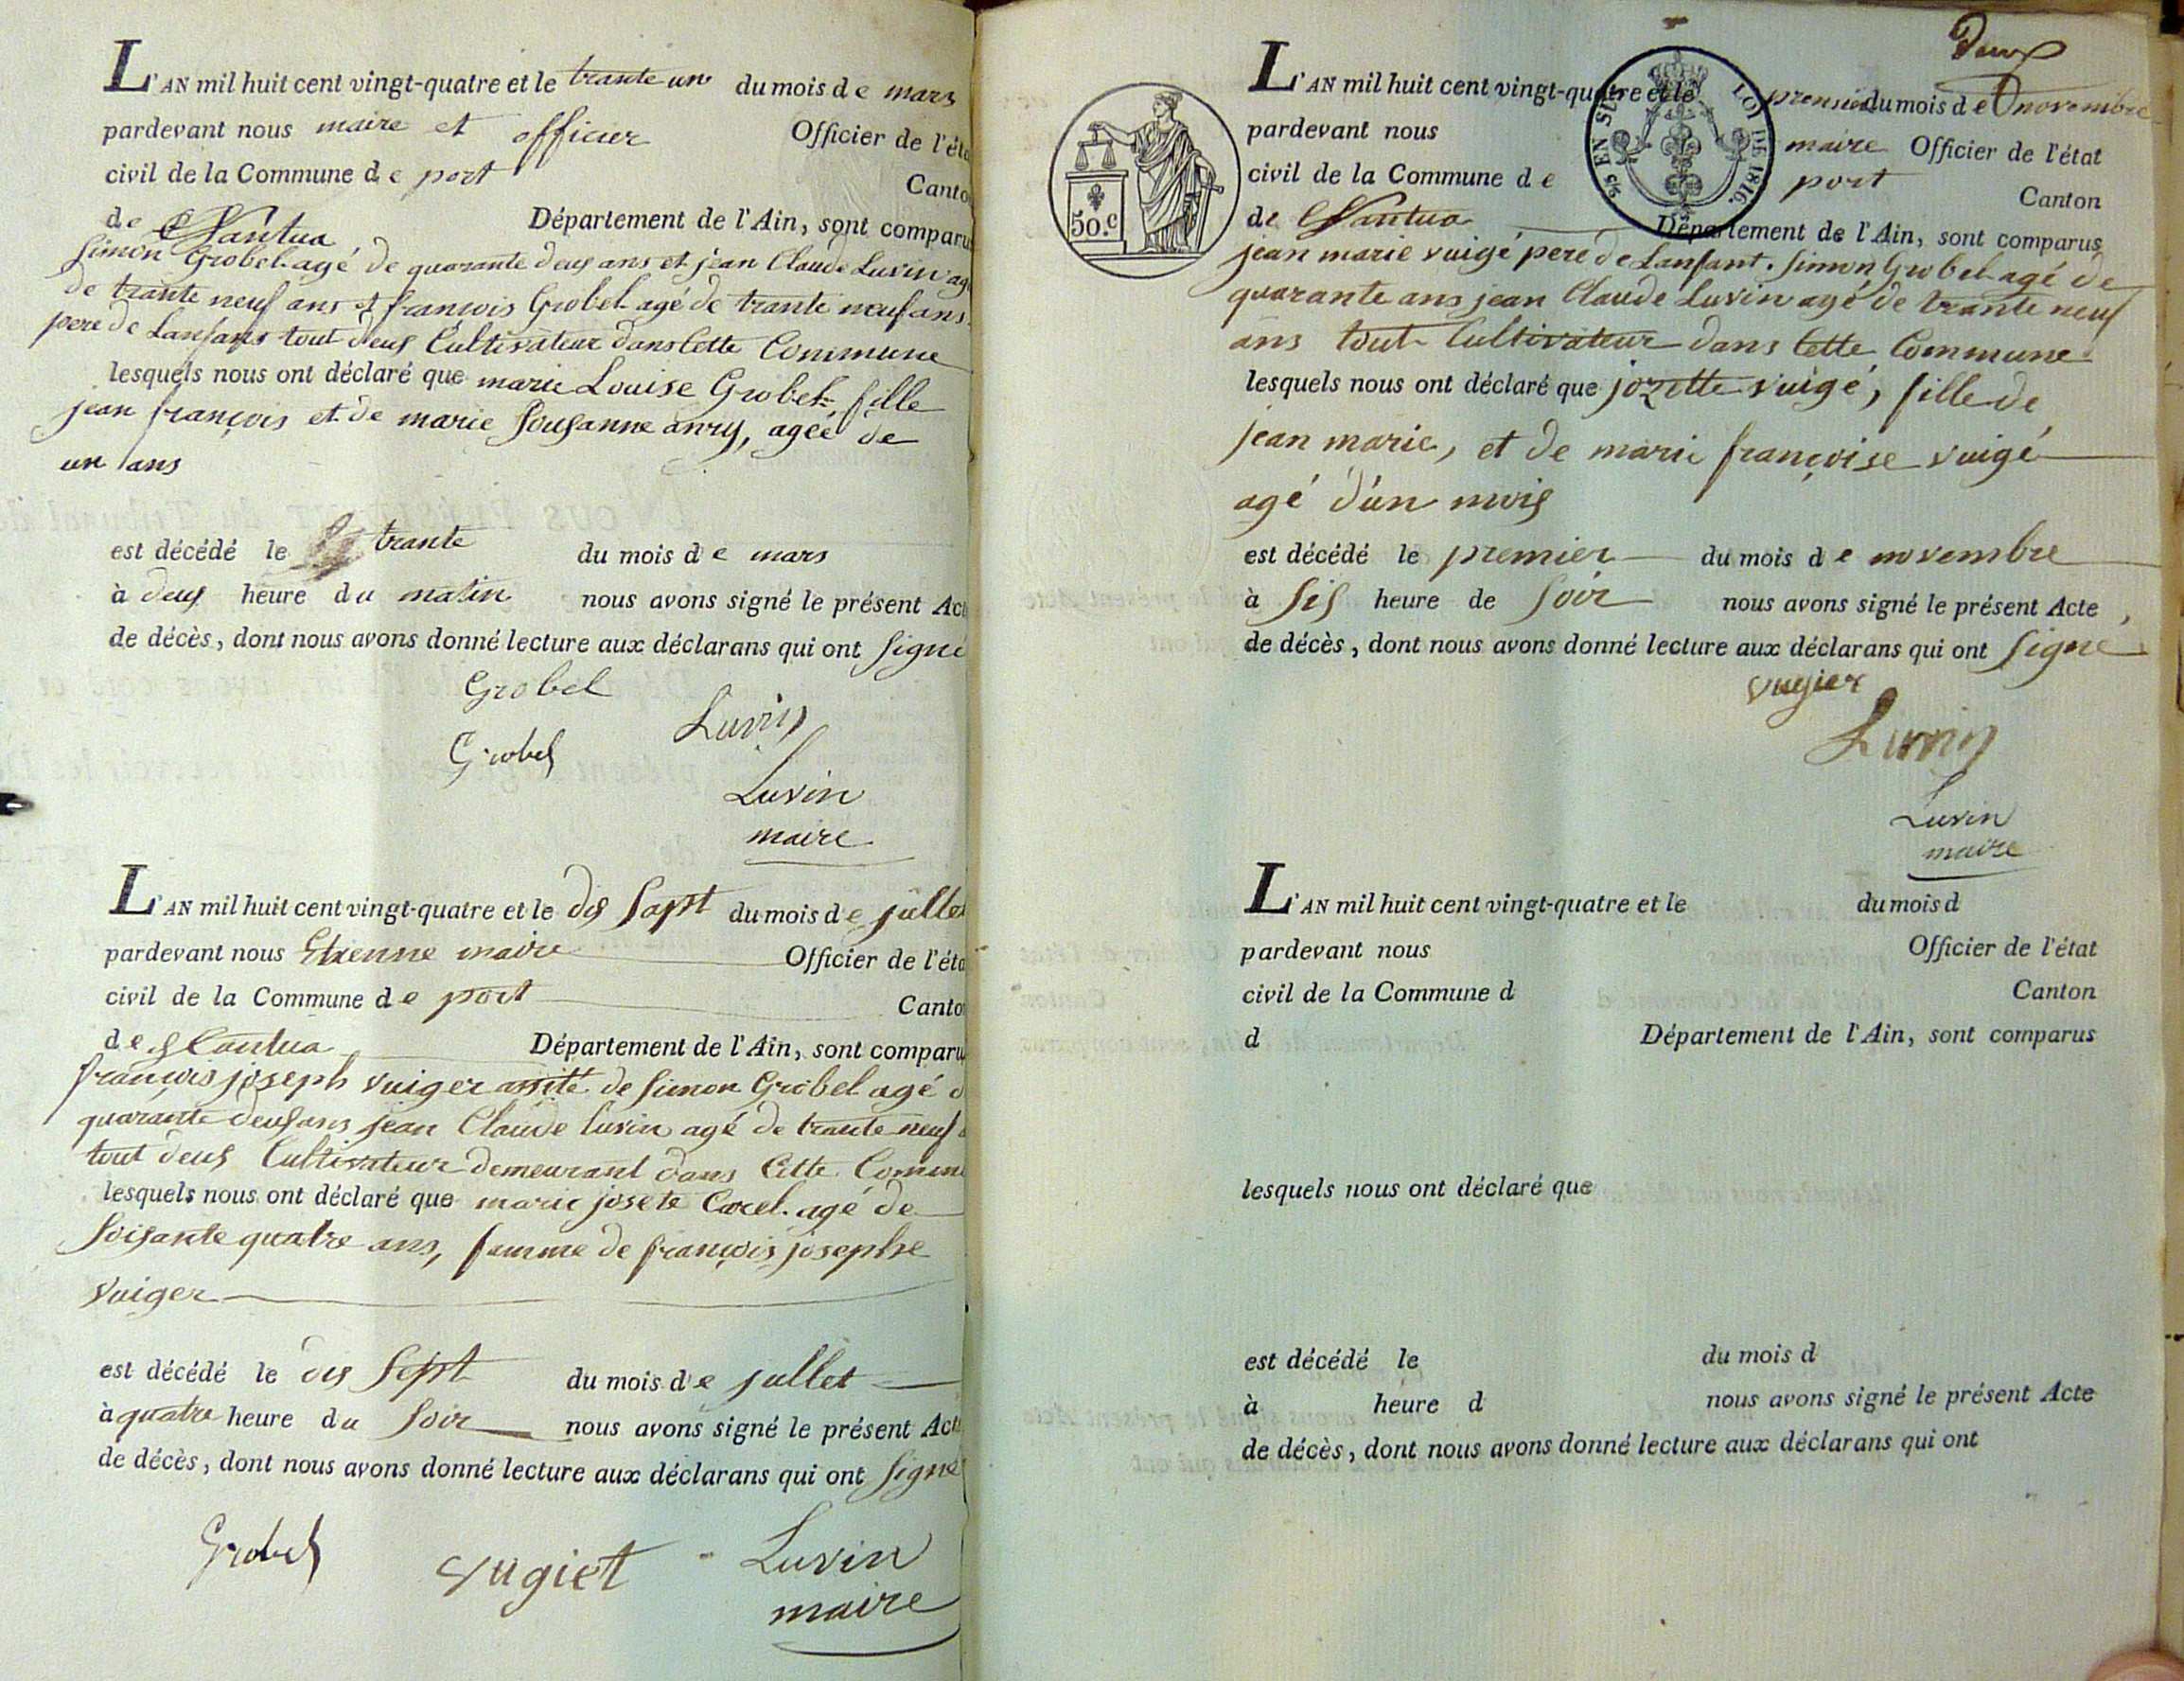 L'AN mil huit cent vingt-quatre et le trante un du mois de mars
pardevant nous maire et officier Officier de l'éta
civil de la Commune de port Canto
de Nantua Département de l'Ain, sont comparu
Simon Grobel agé de quarante deus ans et jean Claude Luvin ag
de trante neuf ans et françois Grobel agé de trante neuf ans
pere de Lanfans tout deus Cultivateur dans Cette Commune
lesquels nous ont déclaré que marie Louise Grobel, fille
jean françois et de marie Sousanne anry, agée de
un ans
est décédé le trante du mois de mars
à deus heure du matin nous avons signé le présent Act
de décès, dont nous avons donné lecture aux déclarans qui ont Signé
Grobel
Luvin
Grobel
Luvin
maire
L'AN mil huit cent vingt-quatre et le dis Sapt du mois de jullet
pardevant nous Etienne maire Officier de l'éta
civil de la Commune de port Canton
de Nantua Département de l'Ain, sont comparu
françois joseph vuiger assité de Simon Grobel agé d
quarante deus ans jean Claude Luvin agé de trante neuf a
tout deus Cultivateur demeurant dans Cette Comm
lesquels nous ont déclaré que marie josete Carel agé de
Soisante quatre ans, famme de françois josephe
vuiger
est décédé le dis Sept du mois de jullet
à quatre heure du Soir nous avons signé le présent Act
de décès, dont nous avons donné lecture aux déclarans qui ont Signé
Grobel vugiet Luvin
maire
Deux
L'AN mil huit cent vingt-quatre et le premier du mois de novembre
pardevant nous maire Officier de l'état
civil de la Commune de port Canton
de Nantua Département de l'Ain, sont comparus
50.c
EN SUS
LOI DE 1816.
jean marie vuigé pere de Lanfant. Simon Grobel agé de
quarante ans jean Claude Luvin agé de trante neuf
ans tout Cultivateur dans Cette Commune
lesquels nous ont déclaré que jozette vuigé, fille de
jean marie, et de marie françoise vuigé
agé d'un mois
est décédé le premier du mois de novembre
à Sis heure de Soir nous avons signé le présent Acte
de décès, dont nous avons donné lecture aux déclarans qui ont Signé
vugier
Luvin
Luvin
maire
L'AN mil huit cent vingt-quatre et le du mois d
pardevant nous Officier de l'état
civil de la Commune d Canton
d Département de l'Ain, sont comparus
lesquels nous ont déclaré que
est décédé le du mois d
à heure d nous avons signé le présent Acte
de décès, dont nous avons donné lecture aux déclarans qui ont